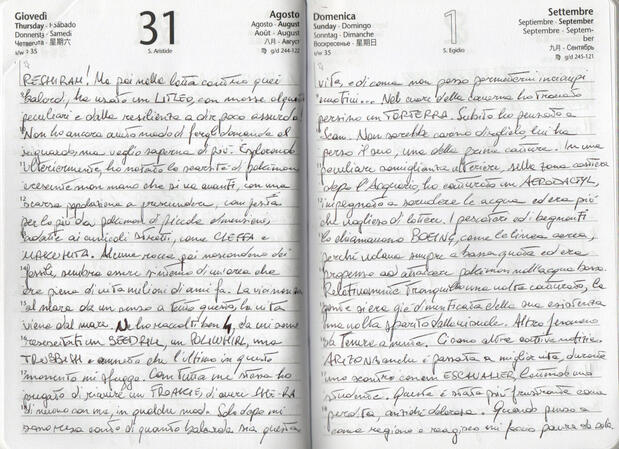 Giovedì
Thursday · Sábado
Donnersta · Samedi
Четверга · 星期六
s/w 35
31
S. Aristide
Agosto
Agosto · August
Août · August
八月 · Август
g/d 244-122
RESHIRAM! Ma poi nella lotta contro quei
balordi, ha usato un LITLEO, con mosse alquanto
peculiari e dalla resilienza a dir poco assurda.
Non ho ancora avuto modo di fargli domande al
riguardo, ma voglio saperne di più. Esplorando
ulteriormente, ho notato la scarsità di pokémon
crescente man mano che si va avanti, con una
scarsa popolazione a prescindere, composta
per lo più da pokémon di piccole dimensioni,
adatte ai cunicoli stretti, come CLEFFA e
MAKUHITA. Alcune rocce poi nascondono dei
fossili, sembra essere sintomo di un'area che
era piena di vita milioni di anni fa. La via
al mare da un senso a tutto questo, la vita
viene dal mare. Ne ho raccolti ben 4, da cui sono
resuscitati un SEADRA, un POLIWHIRL, una
TRUBBISH e che l'ultimo in questo
momento mi sfugga. Con tutta me stessa ho
pregato di riavere un FROAKIE, di avere LHE-RA
di nuovo con me, in qualche modo. Solo dopo mi
sono resa conto di quanto balorda sia questa
Domenica
Sunday · Domingo
Sonntag · Dimanche
Воскресенье · 星期日
s/w 35
1
S. Egidio
Settembre
Septiembre · September
Septembre · Septem-
ber
九月 · Сентябрь
g/d 245-121
vita, e di come non posso permettermi inciampi
emotivi... Nel cuore della caverna ho trovato
persino un TORTERRA. Subito ho pensato a
Sean. Non sarebbe carino dirglielo, lui ha
perso il suo, uno delle prime catture. In una
peculiare somiglianza ulteriore, nella zona costiera
dopo l'Acquario, ho catturato un AERODACTYL,
impegnato a sorvolare le acque ed era più
che voglioso di lottare. I pescatori ed i bagnanti
lo chiamavano BOEING, come la linea aerea,
perché volava sempre a bassa quota ed era
propenso ad attaccare pokémon nell'acqua bassa.
Relativamente tranquillo una volta catturato, la
gente si era già dimenticata della sua esistenza
una volta sparito dal litorale. Altro fenomeno
da tenere a mente. Ci sono altre cattive notizie.
ARIZONA anche è passata a miglior vita, durante
uno scontro con un ESCAVALIER, L'ennesima
studente. Questa è stata più frustrante come
perdita, anziché dolorosa. Quando penso a
come ragiono e reagisco mi faccio paura da sola.